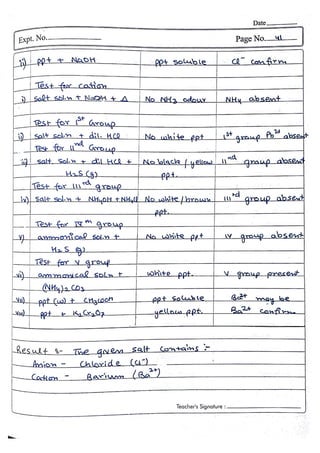 Date
Expt. No. Page No. 41
ii) ppt + NaOH ppt soluble Cl⁻ confirm
Test for cation
i) Salt soln + NaOH + Δ No NH3 odour NH4 absent
Test for Ist Group
i) Salt soln + dil. HCl No white ppt Ist group Pb2+ absent
Test for IInd Group
ii) salt soln + dil HCl + No black / yellow IInd group absent
H2S (g) ppt.
Test for IIIrd group
iv) Salt soln + NH4OH + NH4Cl No white / brown IIIrd group absent
ppt.
Test for IVth group
v) ammonical soln + No white ppt IV group absent
H2S (g)
Test for V group
vi) ammonical soln + white ppt. V group present
(NH4)2 CO3
vii) ppt (w) + CH3COOH ppt soluble Ba2+ may be
viii) ppt + K2Cr2O7 yellow ppt. Ba2+ confirm
Result :- The given salt contains :-
Anion - Chloride (Cl⁻)
Cation - Barium (Ba2+)
Teacher's Signature :